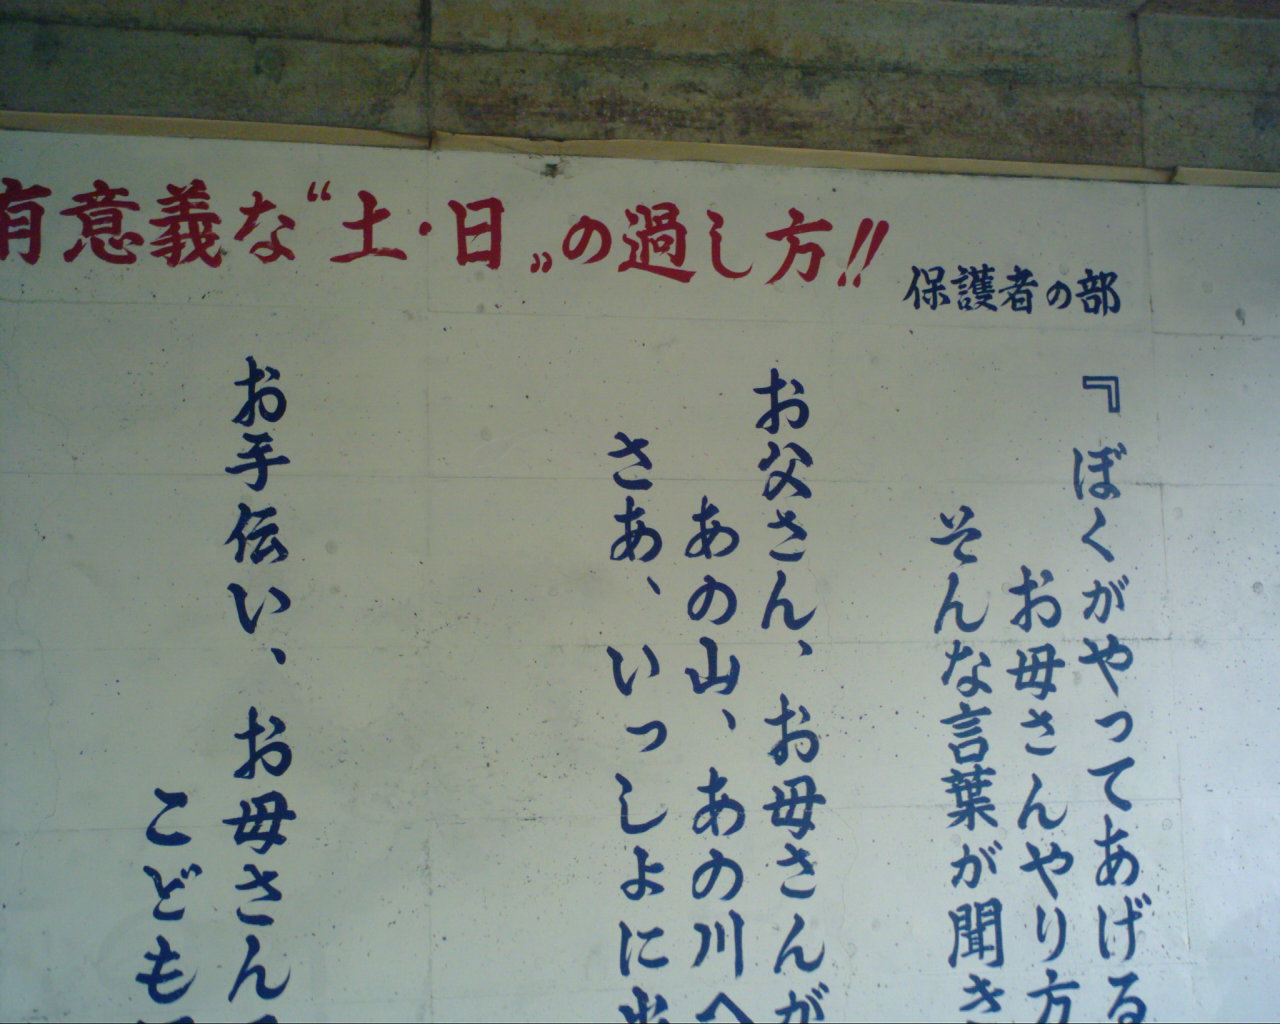 有意義な“土・日„の過し方!!
保護者の部
『ぼくがやってあげる
お母さんやり方
そんな言葉が聞き
お父さん、お母さんが
あの山、あの川へ
さあ、いっしょに出
お手伝い、お母さん
こども